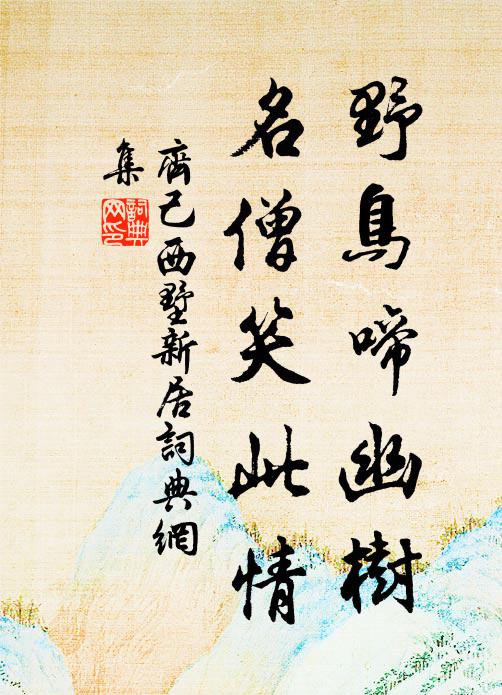 野鳥啼幽樹
名僧笑此情
齊己西墅新居詞典網
集
詞典
网印